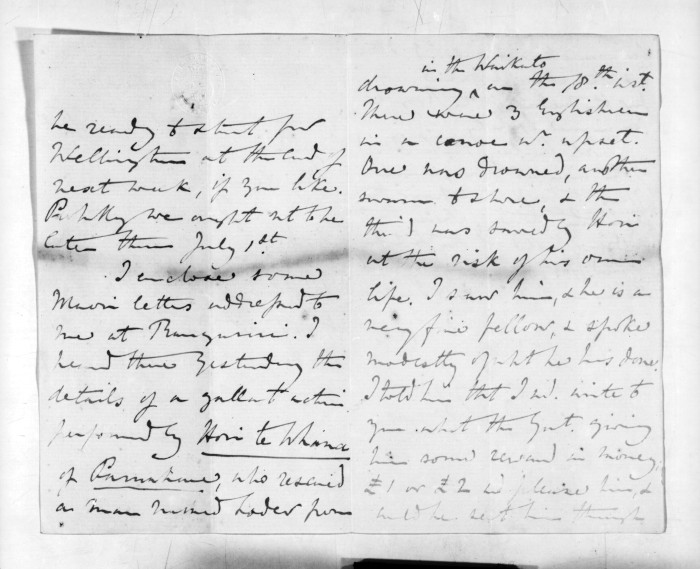 be ready to start for
Wellington at the end of
next week, if you like.
Probably we ought not to be
later than July 1st.
I enclose some
Maori letters addressed to
me at Rangiriri. I
heard there yesterday the
details of a gallant action
performed by Hori te Whana
of , who rescued
a man named from
in the Waikato
drowning ^ on the 18th inst.
There were 3 Englishmen
in a canoe wh. upset.
One was drowned, another
swam to shore, & the
third was saved by Hori
at the risk of his own
life. I saw him, & he is a
very fine fellow, & spoke
modestly of what he has done.
I told him that I wd. write to
you about the Govt. giving
him some reward in money.
£1 or £2 wd please him, &
could be sent him through